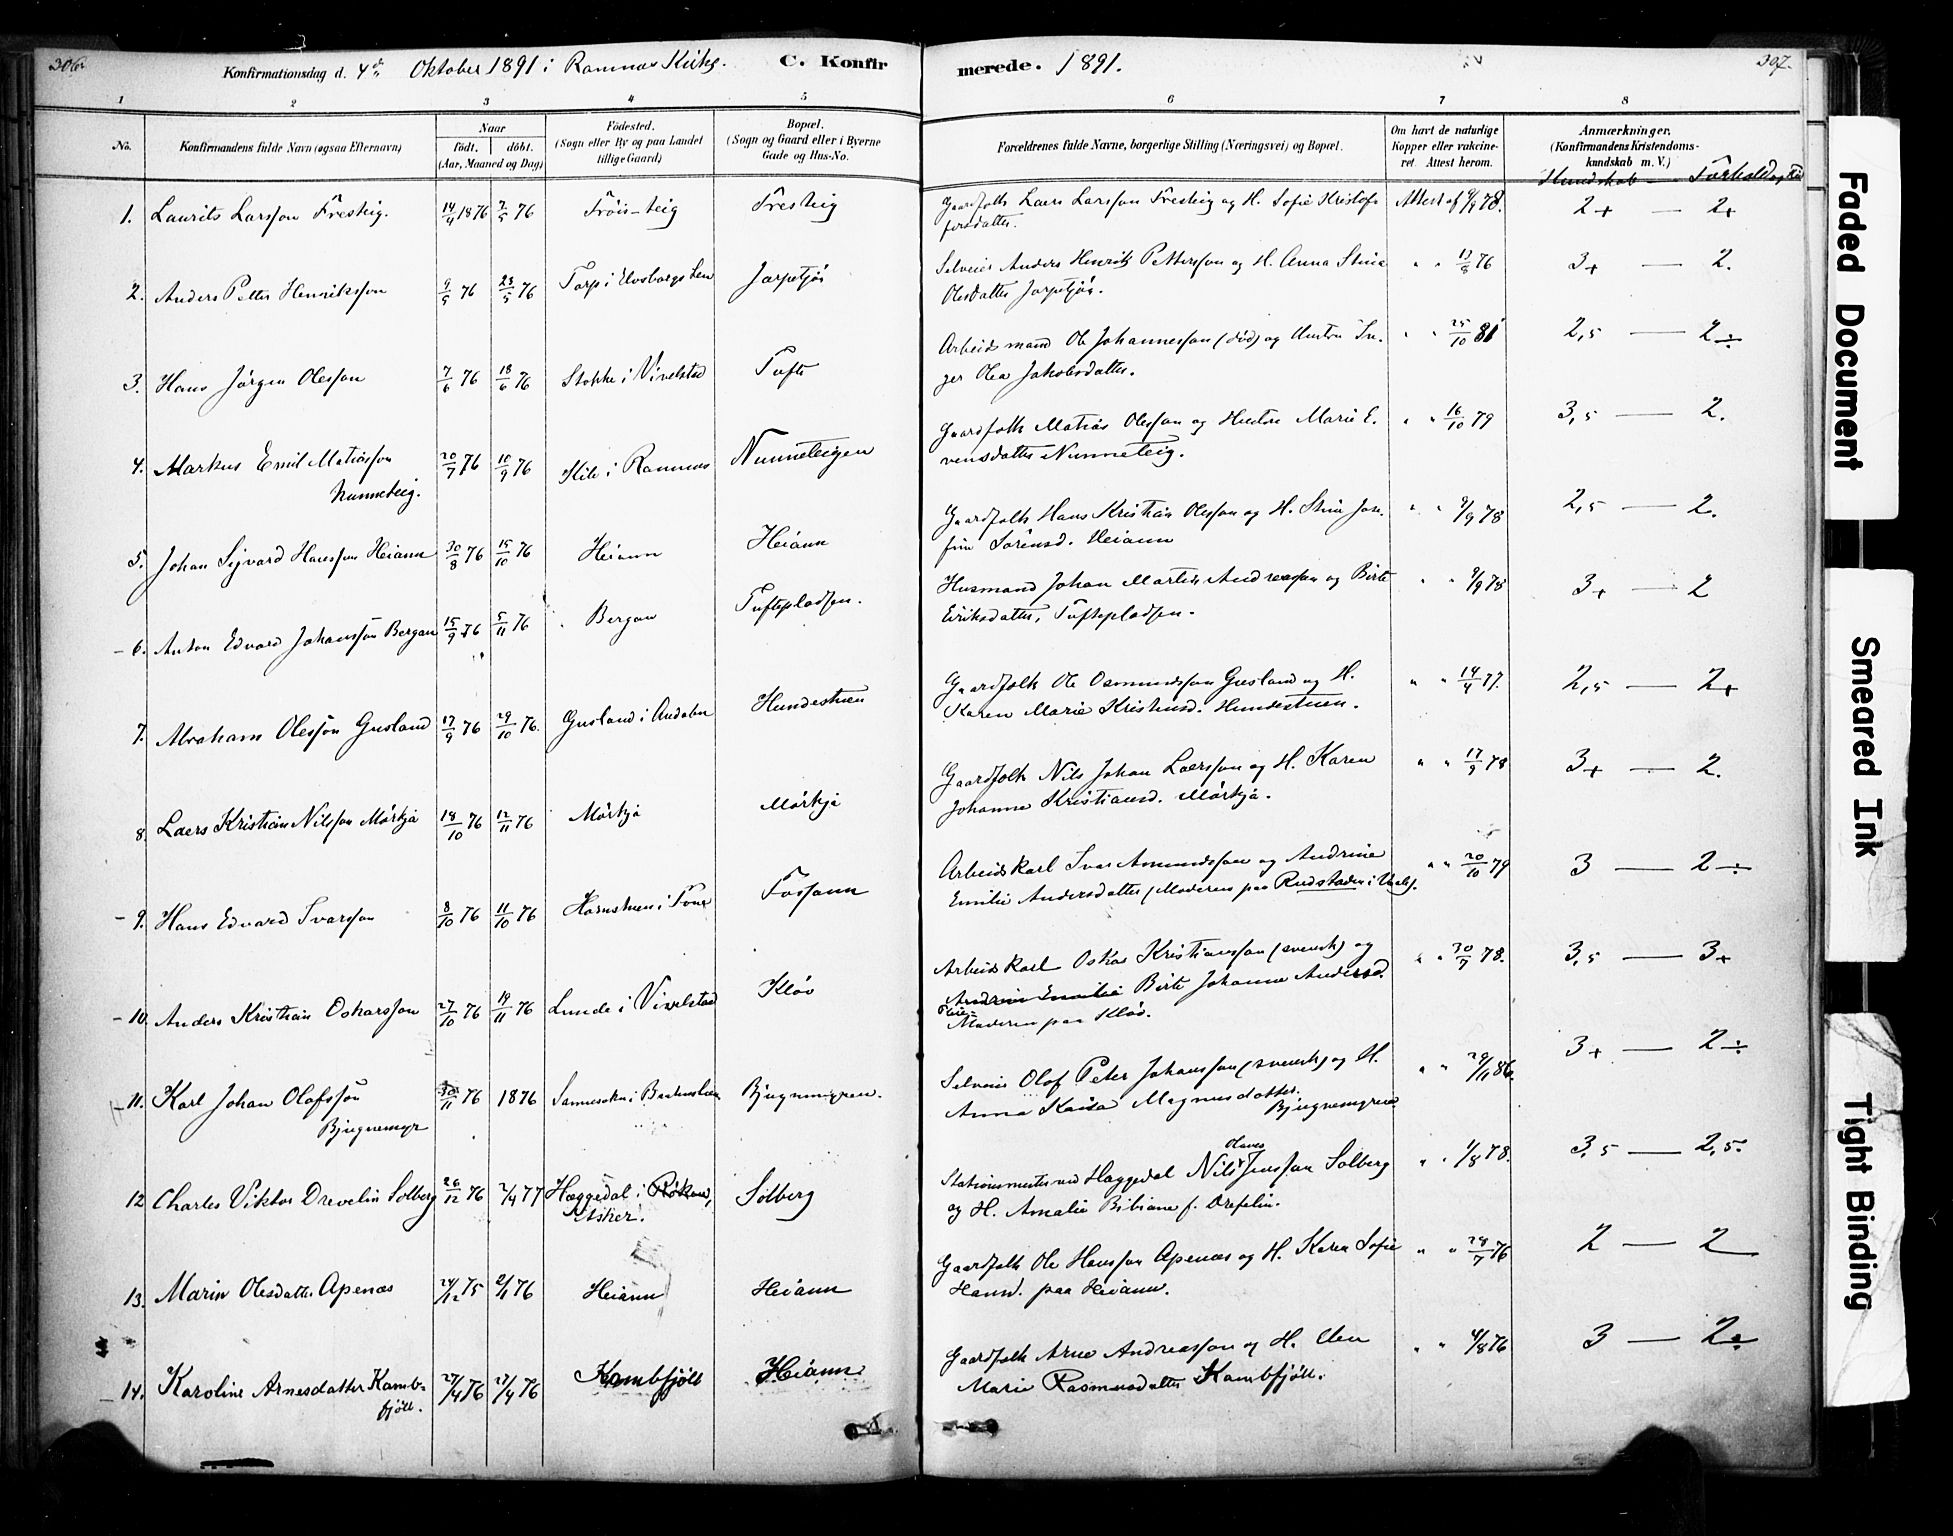 306.
Konfirmationsdag d. 4de Oktober 1891 i Ramnæs Kirke. C. Konfir
merede. 1891.
307.
1 2 3 4 5 6 7 8
No.
Konfirmandens fulde Navn (ogsaa Efternavn)
Naar
födt. döbt.
(Aar, Maaned og Dag)
Födested.
(Sogn eller By og paa Landet
tillige Gaard)
Bopæl.
(Sogn og Gaard eller i Byerne
Gade og Hus-No.
Forældrenes fulde Navne, borgerlige Stilling (Næringsvei) og Bopæl.
Om havt de naturlige
Kopper eller vakcine-
ret Attest herom.
Anmærkninger.
(Konfirmandens Kristendoms-
kundskab m. V.)
Kundskab — Forhold
1. Laurits Larsson Fresteig. 14/4 1876 7/5 76 Fresteig
Gaardfolk Laers Larsson Fresteig og H. Sofie Kristof-
fersdatter. Attest af 9/9 78. 2+ — 2+
2. Anders Petter Henriksson 9/5 76 23/5 76 Torp i Elvsborgs Len Jarpetjös
Selveier Anders Henrik Pettersson og H. Anna Stina
Olesdatter Jarpetjös. " " 13/8 76 3+ — 2.
3. Hans Jörgen Olesson 7/6 76 18/6 76 Stokke i Vivelstad Tufte
Arbeidsmand Ole Johannesson (död) og Hustru In-
ger Olea Jakobsdatter. " " 25/10 81 2,5 — 2÷
4. Markus Emil Matiasson
Nunneteig. 20/7 76 10/9 76 Kile i Ramnæs Nunneteigen
Gaardfolk Matias Olesson og Hustru Marie E-
vensdatter Nunneteig. " " 16/10 79 3,5 — 2.
5. Johan Sigvard Hansson Heiann 30/8 76 15/10 76 Heiann Heiann
Gaardfolk Hans Kristian Olesson og H. Stine Jose-
fine Sörensd. Heiann " " 9/9 78 2,5 — 2.
6. Anton Edvard Johansson Bergan 15/9 76 5/11 76 Bergan Tuftepladsen.
Husmand Johan Martin Andreasson og Birte
Eriksdatter, Tuftepladsen. " " 9/9 78 3+ — 2
7. Abraham Olesson Gusland 17/9 76 29/10 76. Gusland i Andebu Hundestuen
Gaardfolk Ole Osmundsson Gusland og H.
Karen Marie Kristensd. Hundestuen. " " 14/4 77. 2,5 — 2+
8. Laers Kristian Nilsson Mörkja 18/10 76 12/11 76 Mörkja Mörkja
Gaardfolk Nils Johan Laersson og H. Karen
Johanne Kristiansd. Mörkja. " " 17/9 78 3+ — 2.
9. Hans Edvard Ivarsson 8/10 76 11/10 76 Fossann
Arbeidskarl Ivar Amundsson og Andrine
Emilie Andersdatter (Moderen paa Rudstaden i Vaale). " " 20/10 79 3 — 2÷
10. Anders Kristian Oskarsson 27/10 76 19/11 76 Lunde i Vivelstad Klöv
Arbeidskarl Oskar Kristiansson (svensk) og
Andrine Emilie Birte Johanne Andersd.
Moderen paa Klöv. " " 30/7 78. 3,5 — 3+
11. Karl Johan Olafsson
Bjugnemyr 30/11 76 1876 Bjugnemyren.
Selveier Olof Peter Johansson (svensk) og H.
Anna Kaisa Magnusdatter.
Bjugnemyren " " 29/11 86. 3+ — 2÷
12 Charles Viktor Drevelin Solberg 26/12 76 2/4 77 Hæggedal i Röken,
Asker. Solberg
Stationsmester ved Haggedal Nils Olaves Jensson Solberg
og H. Amalie Bibiane f. Drefelin. " " 1/8 78. 3,5 — 2,5
13. Marin Olesdatter Apenæs 24/12 75 2/1 76 Heiann Heiann
Gaardfolk Ole Hansson Apenæs og H. Karen Sofie
Hansd. paa Heiann. " " 28/7 76 2 — 2
14. Karoline Arnesdatter Kamb-
fjöll. 27/4 76 27/4 76 Kambfjöll Heiann
Gaardfolk Arne Andreasson og H. Elen
Marie Rasmusdatter Kambfjöll. " " 4/8 76 3 — 2
Faded Document
Smeared Ink
Tight Binding